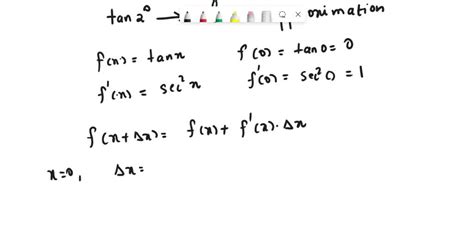 tan 2° → oximation
f(x) = tanx f'(0) = tan0 = 0
f'(x) = sec²x f'(0) = sec²0 = 1
f(x+Δx) = f(x) + f'(x)·Δx
x=0, Δx =